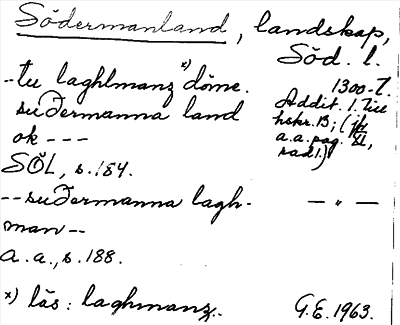 Södermanland, landskap,
Söd. l.
--tu laghlmanz x) döme.
suðermanna land
ok ---
SÖL, s. 184.
1300-t.
Addit. 1. till
hskr. B; (jfr
a.a. pag. XI,
rad 1.)
--suðermanna lagh-
man--
a. a., s. 188.
— " —
x) läs: laghmanz.
G.E. 1963.